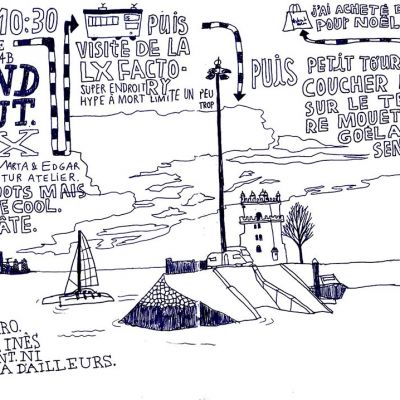 10:30
4B
ND
UT.
X
MARTA & EDGAR
TUR ATELIER.
OOTS MAIS
E COOL.
ÂTE.
PUIS
VISITE DE LA
LX FACTO-
RY
SUPER ENDROIT
HYPE À MORT LIMITE UN
PEU
TROP
PUIS
J'AI ACHETÉ
POUR NOËL
PETIT TOUR
COUCHER
SUR LE TE
RE MOUET
GOÉLA
SEN
RO.
INÈS
NT. NI
A D'AILLEURS.